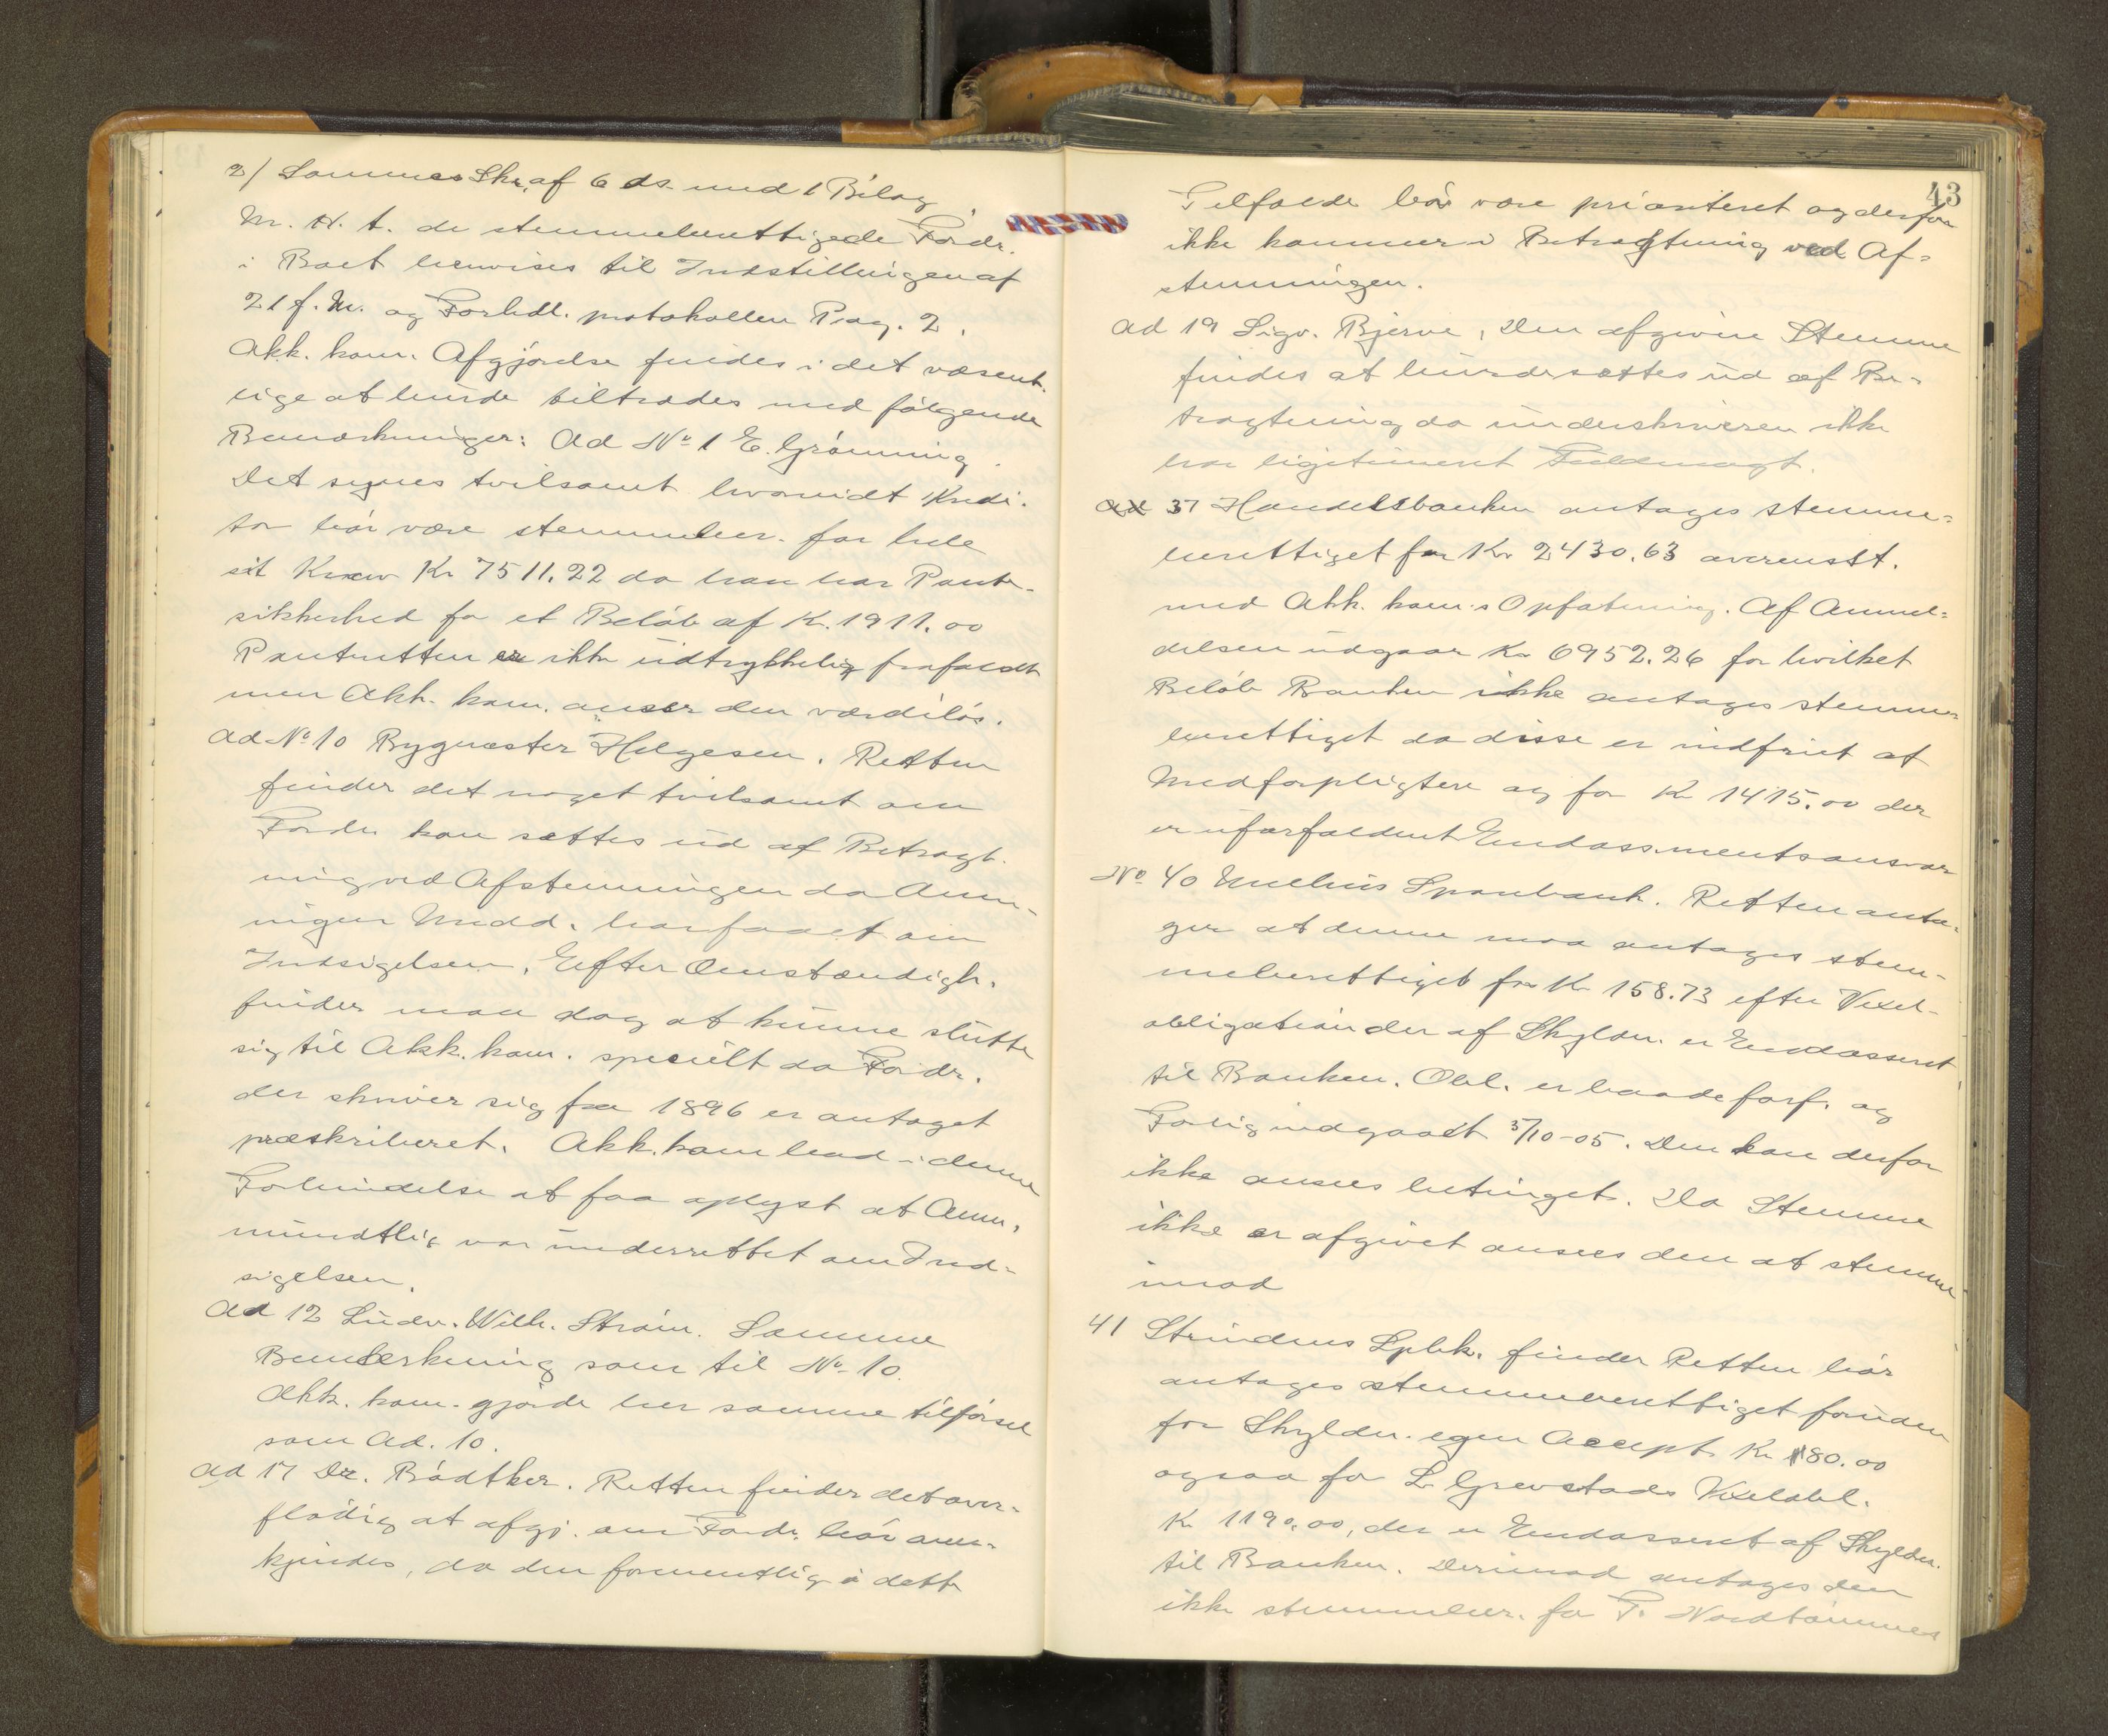 2/ Sammes Skr. af 6 ds. med 1 Bilag.
M. H. t. de stemmeberettigede Fordr.
i Boet henvises til Indstillingen af
21 f. M. og Forhdl. protokollen Pag. 2.
Akk. kom. Afgjørelse findes i det væsent-
lige at burde tiltrædes med følgende
Bemærkninger: Ad No 1 E. Grønning.
Det synes tvilsomt hvorvidt Kredi-
tor bør være stemmeber. for hele
sit Krav Kr 7511.22 da han har Pante-
sikkerhed for et Beløb af K. 1911.00
Panteretten er ikke udtrykkelig frafaldt
men Akk. kom. anser den værdiløs.
Ad No 10 Bygmester Helgesen. Retten
finder det noget tvilsomt om
Fordr. kan sættes ud af Betragt-
ning ved Afstemningen da Anm-
ingen Medd. har faaet om
Indsigelsen. Efter Omstændigh.
finder man dog at kunne slutte
sig til Akk. kom. specielt da Fordr.
der skriver sig fra 1896 er antaget
præskriberet. Akk. kom bad i denne
Forbindelse at faa oplyst at Anm.
mundtlig var underrettet om Ind-
sigelsen.
Ad 12 Ludv. Wilh. Strøm. Samme
Bemerkning som til No 10.
Akk. kom. gjorde her samme tilførsel
som Ad. 10.
Ad 17 Dr. Bødtker. Retten finder det over-
flødig at afgj. om Fordr. bør aner-
kjendes, da den formentlig i dette
43
Tilfælde bør være prioriteret og derfor
ikke kommer i Betragtning ved Af-
stemningen.
Ad 19 Sigv. Bjerve, Den afgivne Stemme
findes at burde sættes ud af Be-
tragtning da underskriveren ikke
har ligetimeret Fuldmagt.
Ad 37 Handelsbanken antages stemme-
berettiget for Kr. 2430.63 overensst.
med Akk. kom.s Opfatning. Af Anmel-
delsen udgaar Kr 6952.26 for hvilket
Beløb Banken ikke antages stemme-
berettiget da disse er indfriet af
Medforpligtere og for Kr 1415.00 der
er uforfaldent Endossmentsansvar
No 40 Melhus Sparebank. Retten anta-
ger at denne maa antages stem-
meberettiget for Kr 158.73 efter Vexel-
obligation der af Skyldn. er Endosseret
til Banken. Obl. er baade forf. og
Forlig indgaaet 3/10-05. Den kan derfor
ikke ansees betinget. Da Stemme
ikke er afgivet ansees den at stemme
imod
41 Strindens Spbk. finder Retten bør
antages stemmeberettiget foruden
for Skyldn. egen Accept Kr 180.00
ogsaa for L. Grevstads Vexelobl.
Kr 1190.00, der er Endosseret af Skyldn.
til Banken. Derimod antages den
ikke stemmeber. for P. Nordtømmes